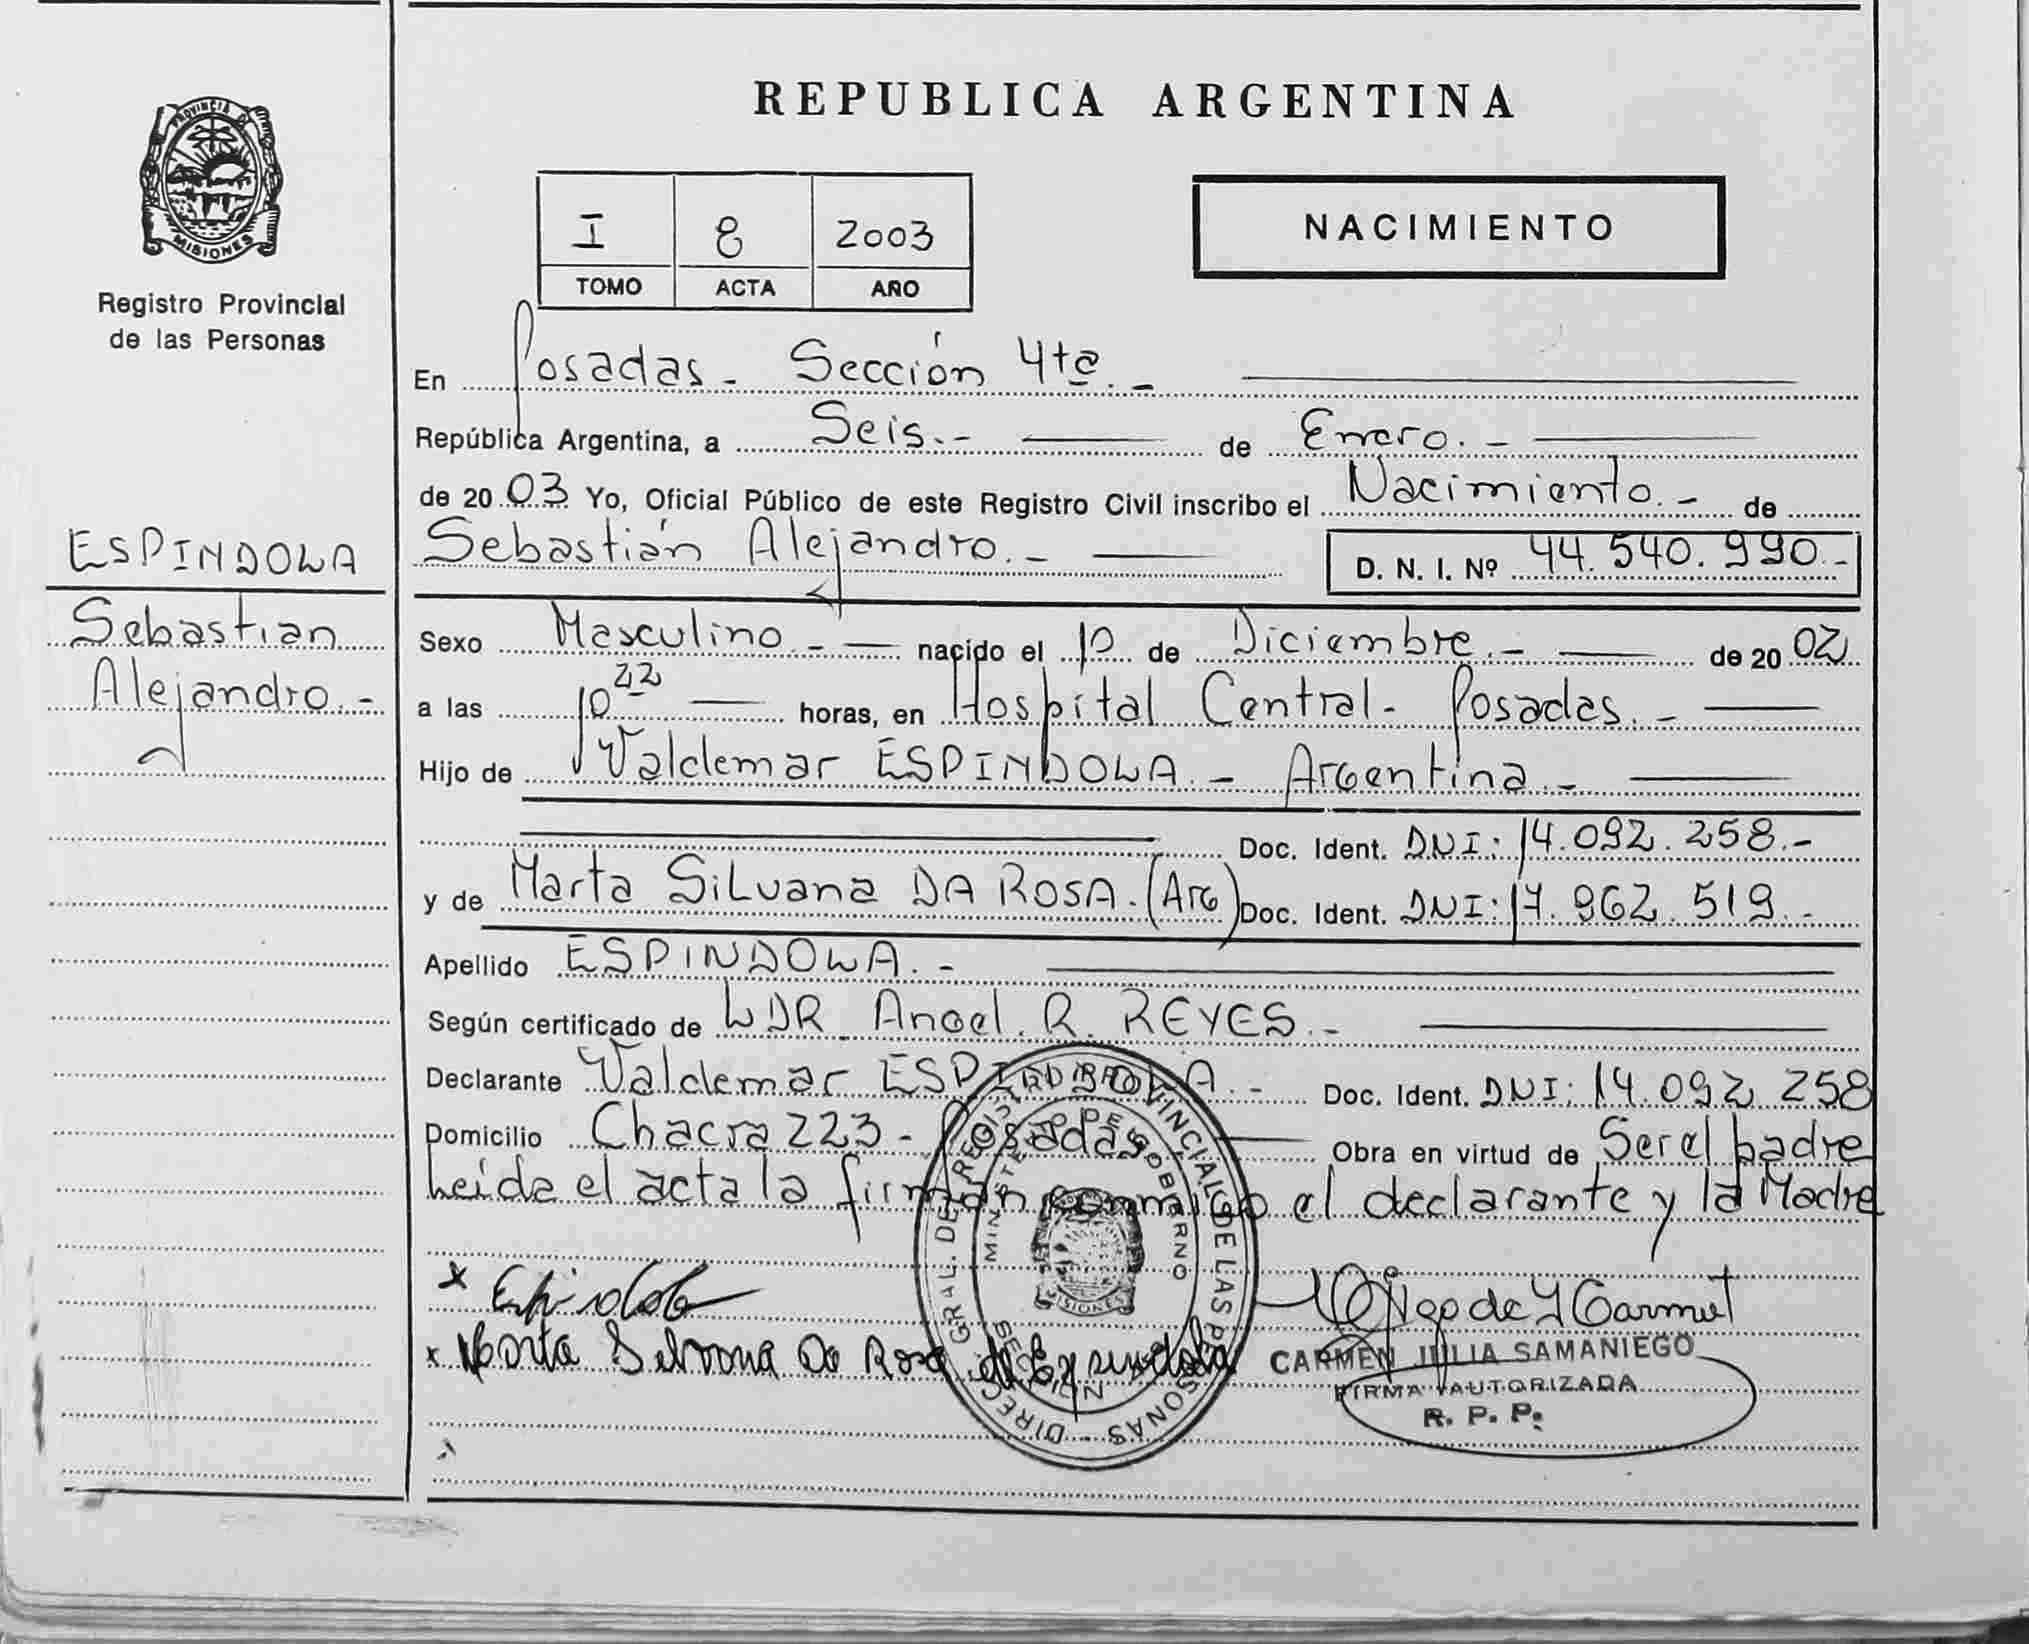 REPUBLICA ARGENTINA
PROVINCIA DE MISIONES
Registro Provincial
de las Personas
I 8 2003
TOMO ACTA AÑO
NACIMIENTO
En Posadas - Sección 4ta. -
República Argentina, a Seis. - de Enero. -
de 20 03 Yo, Oficial Público de este Registro Civil inscribo el Nacimiento. - de
Sebastián Alejandro. - D. N. I. Nº 44.540.990.-
ESPINDOLA
Sebastian
Alejandro. -
Sexo Masculino. - nacido el 10 de Diciembre. - de 20 02
a las 10 22 horas, en Hospital Central - Posadas. -
Hijo de Valdemar ESPINDOLA. - Argentina. -
Doc. Ident. DNI: 14.092.258.-
y de Marta Silvana DA ROSA. (Arg) Doc. Ident. DNI: 17.962.519.-
Apellido ESPINDOLA. -
Según certificado de LDR Angel. R. REYES. -
Declarante Valdemar ESPINDOLA. - Doc. Ident. DNI: 14.092 258
Domicilio Chacra 223 - Posadas Obra en virtud de Ser el padre
Leida el acta la firman conmigo el declarante y la Madre
x Espindola
x Marta Silvana Da Rosa de Espindola
CARMEN JULIA SAMANIEGO
FIRMA AUTORIZADA
R. P. P.
DIREC. GRAL. DE REGISTRO PROVINCIAL DE LAS PERSONAS -
MINISTERIO DE GOBIERNO
MISIONES